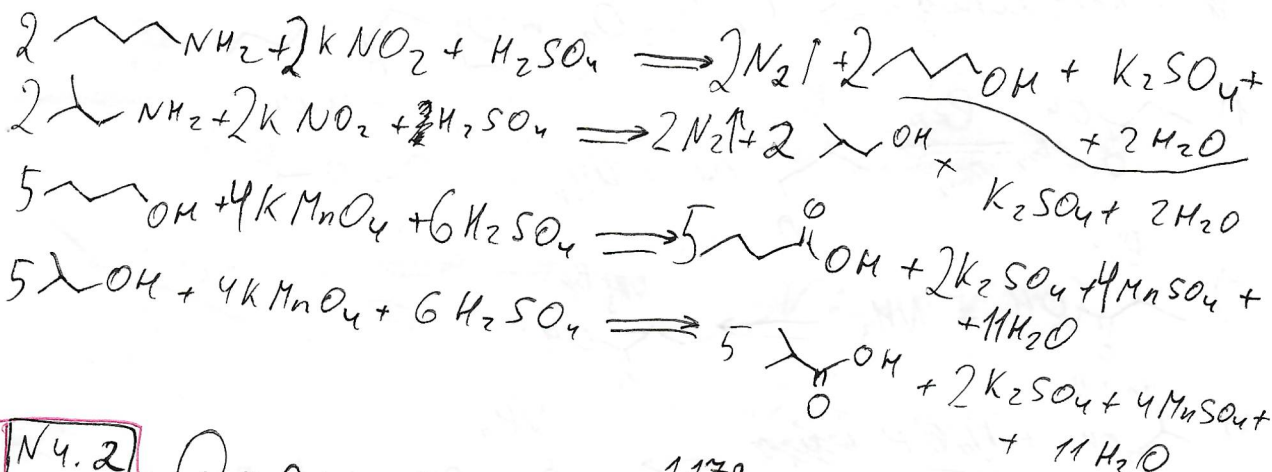 2 NH₂ + 2KNO₂ + H₂SO₄ ⟹ 2N₂↑ + 2 OH + K₂SO₄ +
+ 2H₂O
2 NH₂ + 2KNO₂ + H₂SO₄ ⟹ 2N₂↑ + 2 OH +
K₂SO₄ + 2H₂O
5 OH + 4KMnO₄ + 6H₂SO₄ ⟹ 5 O OH + 2K₂SO₄ + 4MnSO₄ +
+ 11H₂O
5 OH + 4KMnO₄ + 6H₂SO₄ ⟹ 5 OH O + 2K₂SO₄ + 4MnSO₄ +
+ 11H₂O
N4.2